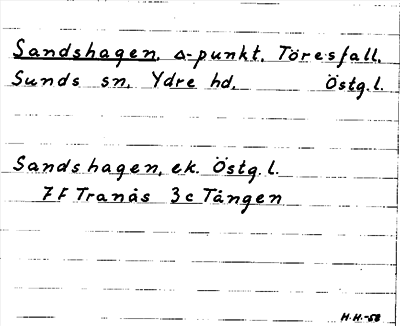 Sandshagen, △-punkt, Töresfall.
Sunds sn, Ydre hd, Östg.l.
Sandshagen, ek. Östg.l.
7F Tranås 3c Tången
H.H.-58